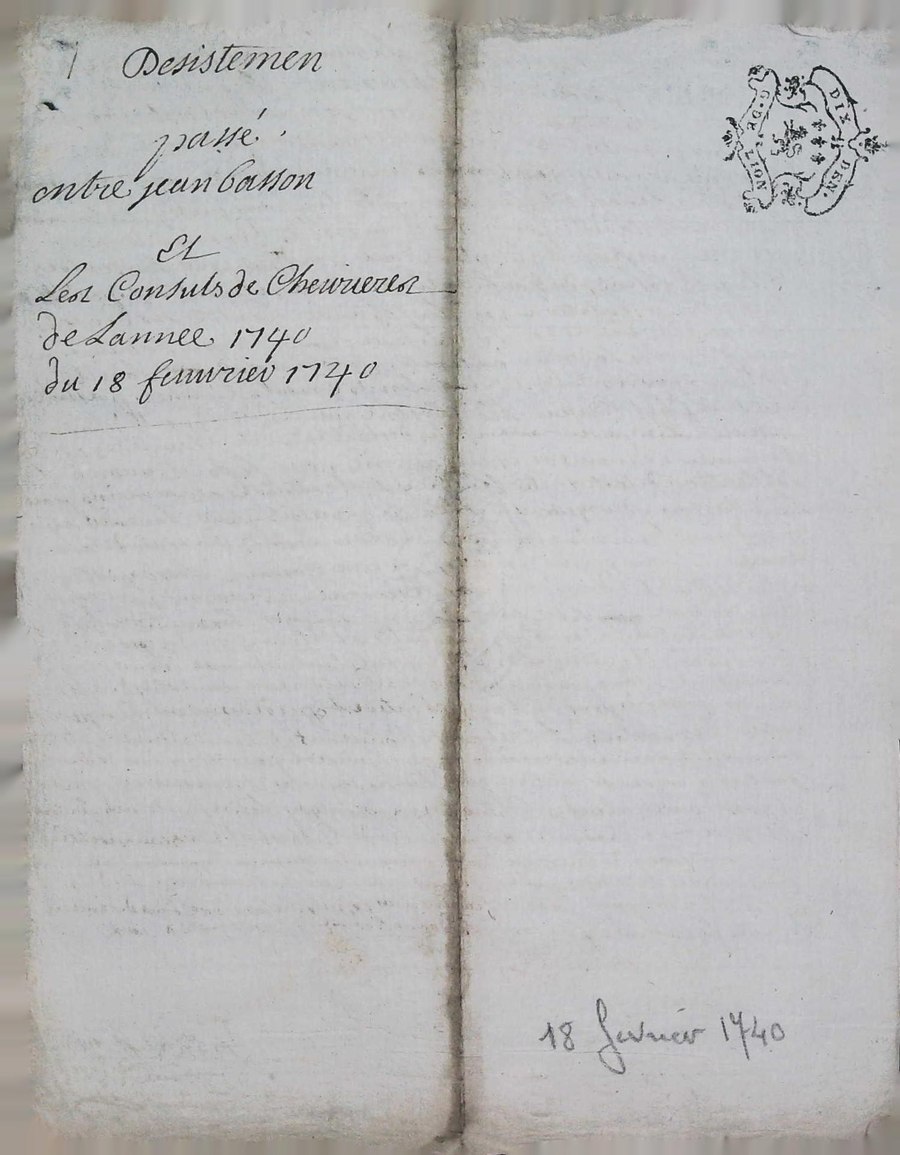 Desistemen
passé
entre jean basson
Et
Les Consuls de Chevrieres
de Lannee 1740
du 18 fevvrier 1740
G. DE LION
DIX DEN.
18 fevrier 1740